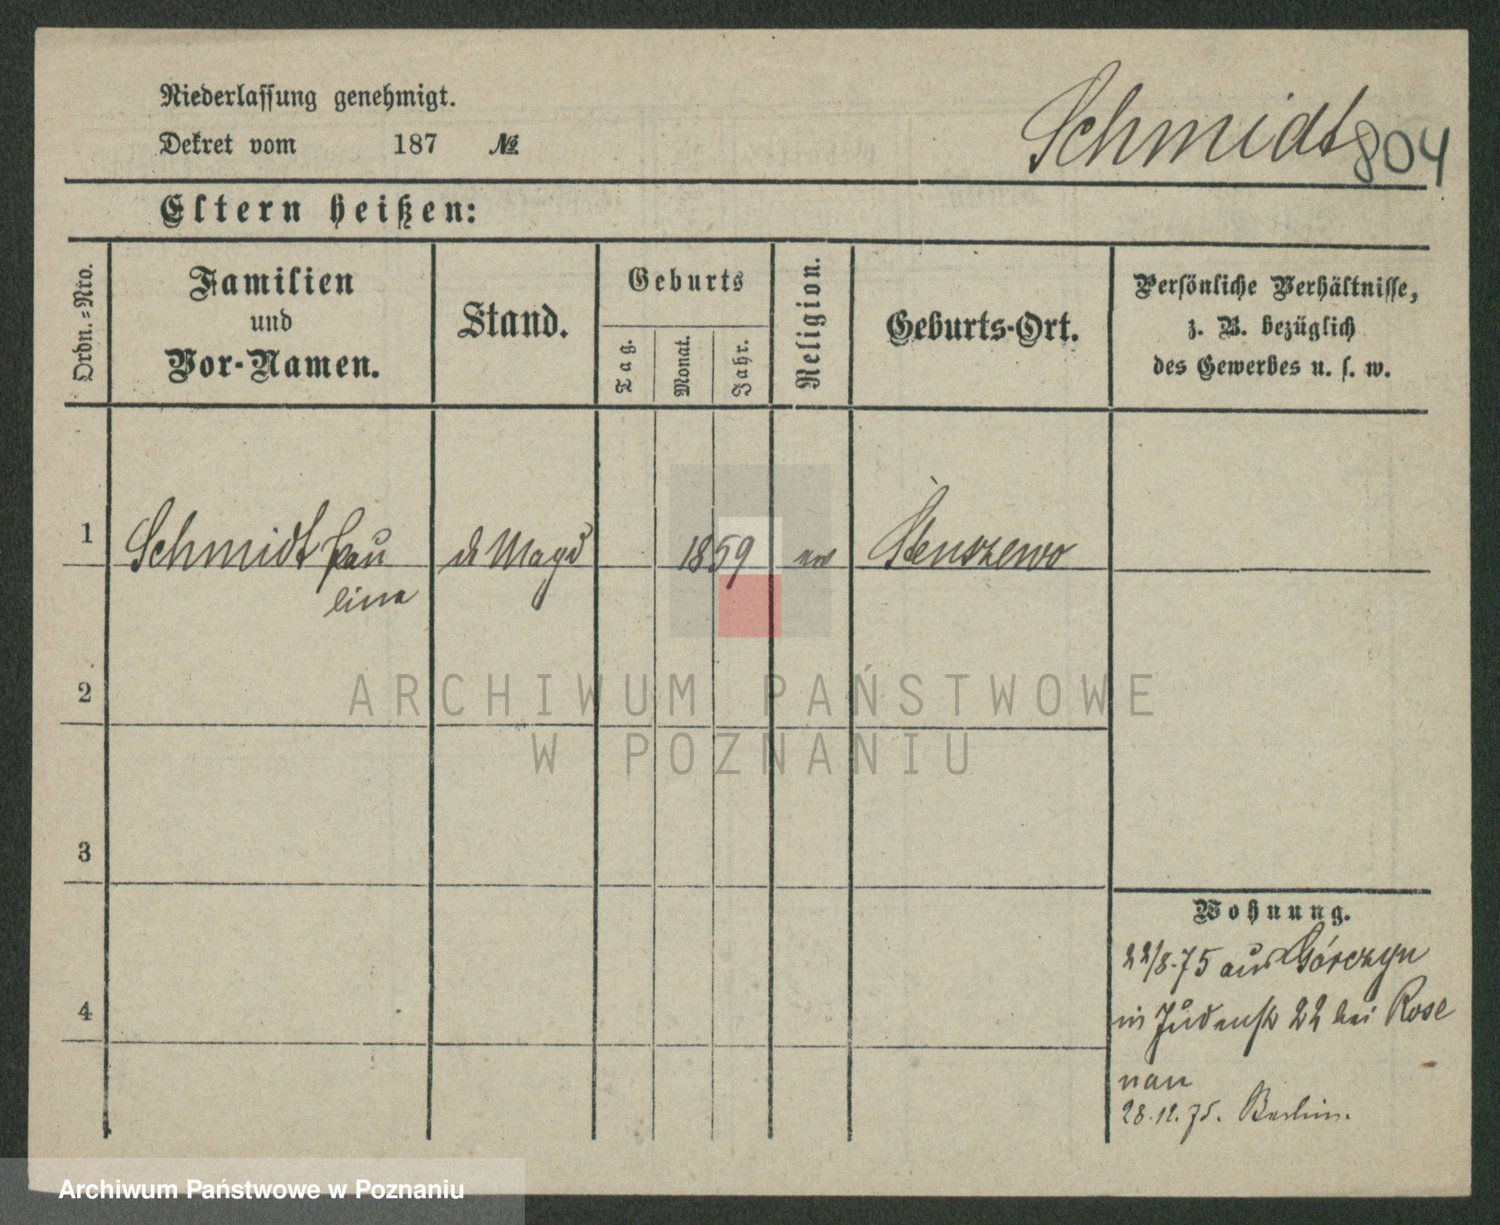 Niederlassung genehmigt.
Dekret vom 187 №
Schmidt 804
Eltern heißen:
Ordn.-Nro.
Familien
und
Vor-Namen.
Stand.
Geburts
Tag.
Monat.
Jahr.
Religion.
Geburts-Ort.
Persönliche Verhältnisse,
z. B. bezüglich
des Gewerbes u. s. w.
1 Schmidt Pau Magd 1859 Stenszewo
lina
2
ARCHIWUM PAŃSTWOWE
W POZNANIU
3
Wohnung.
22/8.75 aus Górczyn
in Judenstr 22 bei Rose
nau
4
28.12.75. Berlin.
Archiwum Państwowe w Poznaniu